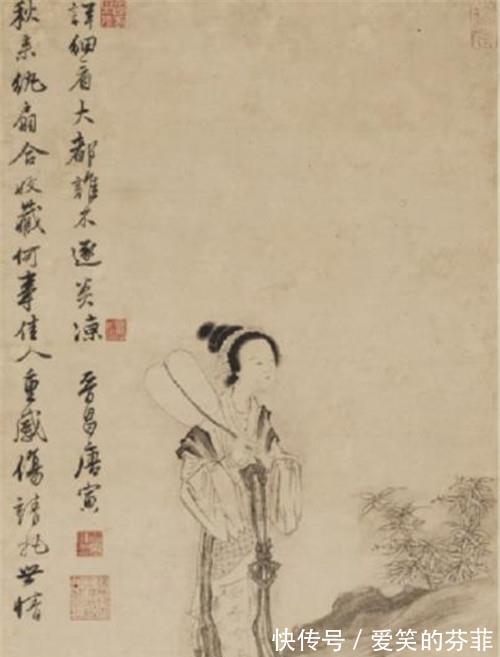 秋来纨扇合收藏何事佳人重感伤请托世情
详细看大都谁不逐炎凉 晋昌唐寅
快传号 / 爱笑的芬菲